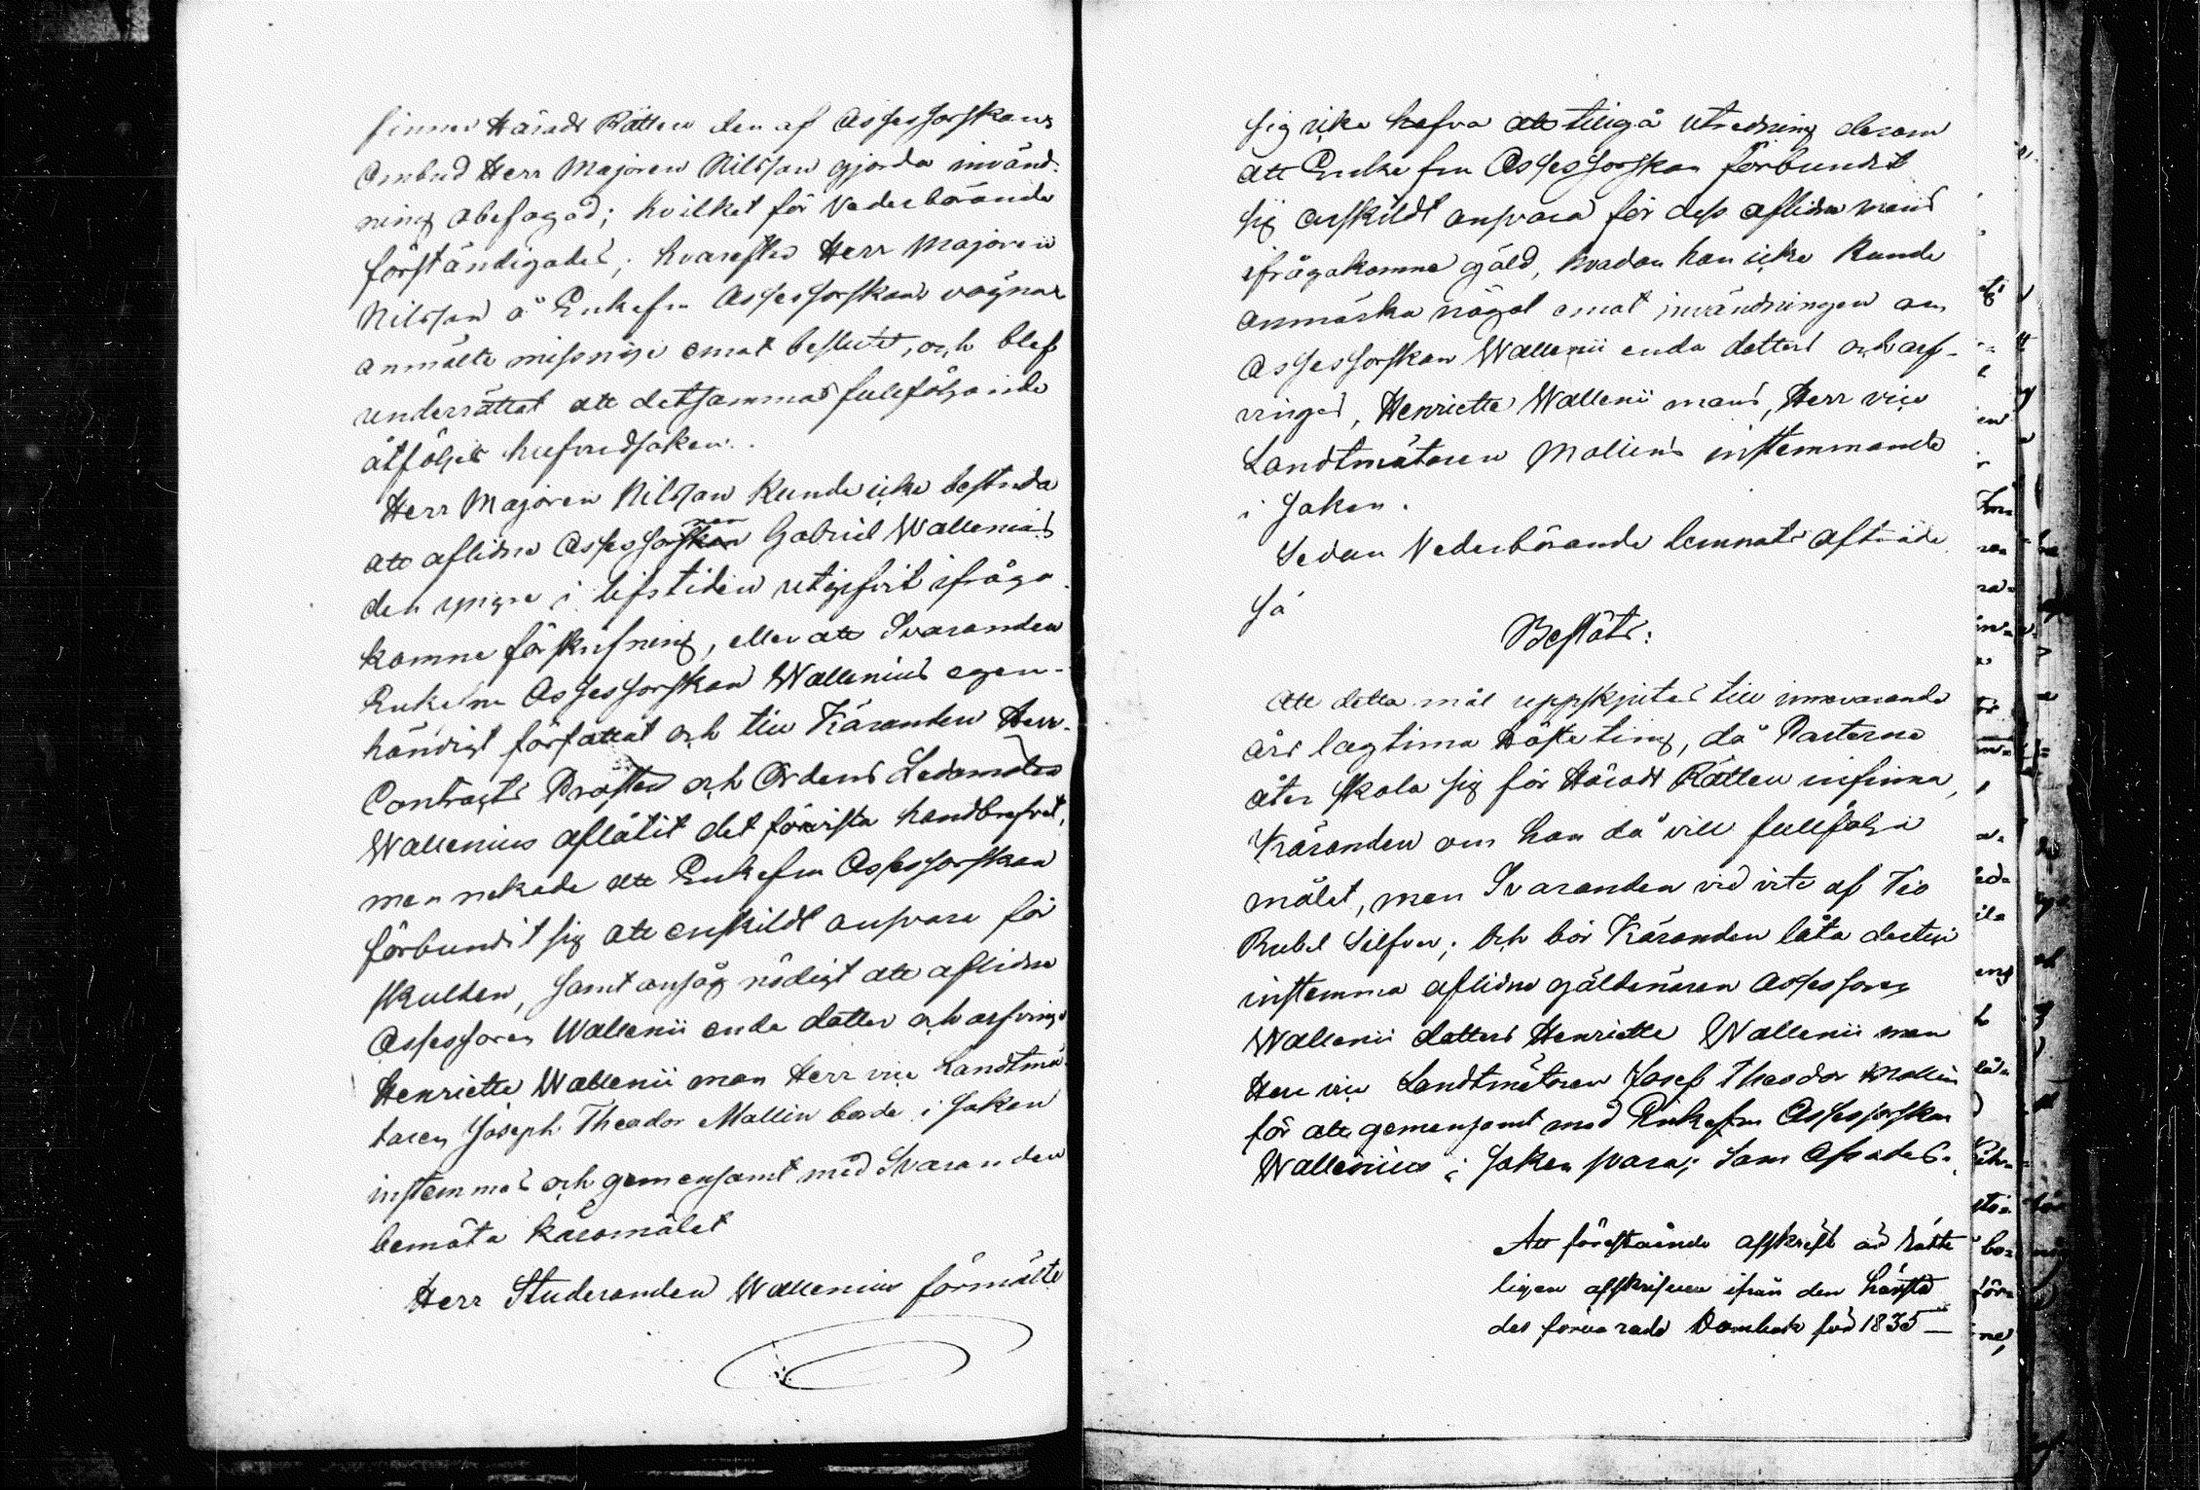 finner Härads Rätten den af Assessorskans
Ombud Herr Majoren Nilsson gjorda invänd-
ning obefogad; hvilket för Vederbörande
förständigades; hvarefter Herr Majoren
Nilsson å Enkefru Assessorskans vägnar
anmälte missnöje emot beslutet, och blef
underrättat att detsammas fullföljande
åtföljer hufvudsaken.
Herr Majoren Nilsson kunde icke bestrida
att aflidne Assessoren Gabriel Wallenius
den yngre i lifstiden utgifvit ifråga-
komne förskrifning, eller att Svaranden
Enkefru Assessorskan Wallenius egen-
händigt författat och till Käranden Herr
Contracts Prosten och Ordens Ledamoten
Wallenius aflåtit det förevista handbrefvet,
men nekade att Enkefru Assessorskan
förbundit sig att enskildt ansvara för
skulden, samt ansåg nödigt att aflidne
Assessoren Wallenii enda dotter och arfvinge
Henriette Wallenii man Herr vice Landtmä-
taren Joseph Theodor Mollin borde i saken
instemmas och gemensamt med Svaranden
bemöta käromålet
Herr Studeranden Wallenius förmälte
sig icke hafva att tillgå utredning derom
att Enkefru Assessorskan förbundit
sig enskildt ansvara för dess aflidne mans
ifrågakomne gäld, hvadan han icke kunde
anmärka något emot invändningen om
Assessorskan Wallenii enda dotters och arf-
vinges, Henriette Wallenii mans, Herr vice
Landtmätaren Mollins instemmande
i saken.
Sedan Vederbörande lemnats afträde
Så
Beslöts:
Att detta mål uppskjutes till innevarande
års lagtima Höste ting, då Parterne
åter skola sig för Härads Rätten infinna,
Käranden om han då vill fullfölja
målet, men Svaranden vid vite af Tio
Rubel Silfver; Och bör Käranden låta dertill
instemma aflidne gäldenären Assessoren
Wallenii dotters Henriette Wallenii man
Herr vice Landtmätaren Josef Theodor Mollin
för att gemensamt med Enkefru Assessorskan
Wallenius i saken svara; Som Afsades.
Att förestående afskrift är rätte
ligen afskrifven ifrån den härsta
des förvarade Dombok för 1835 —